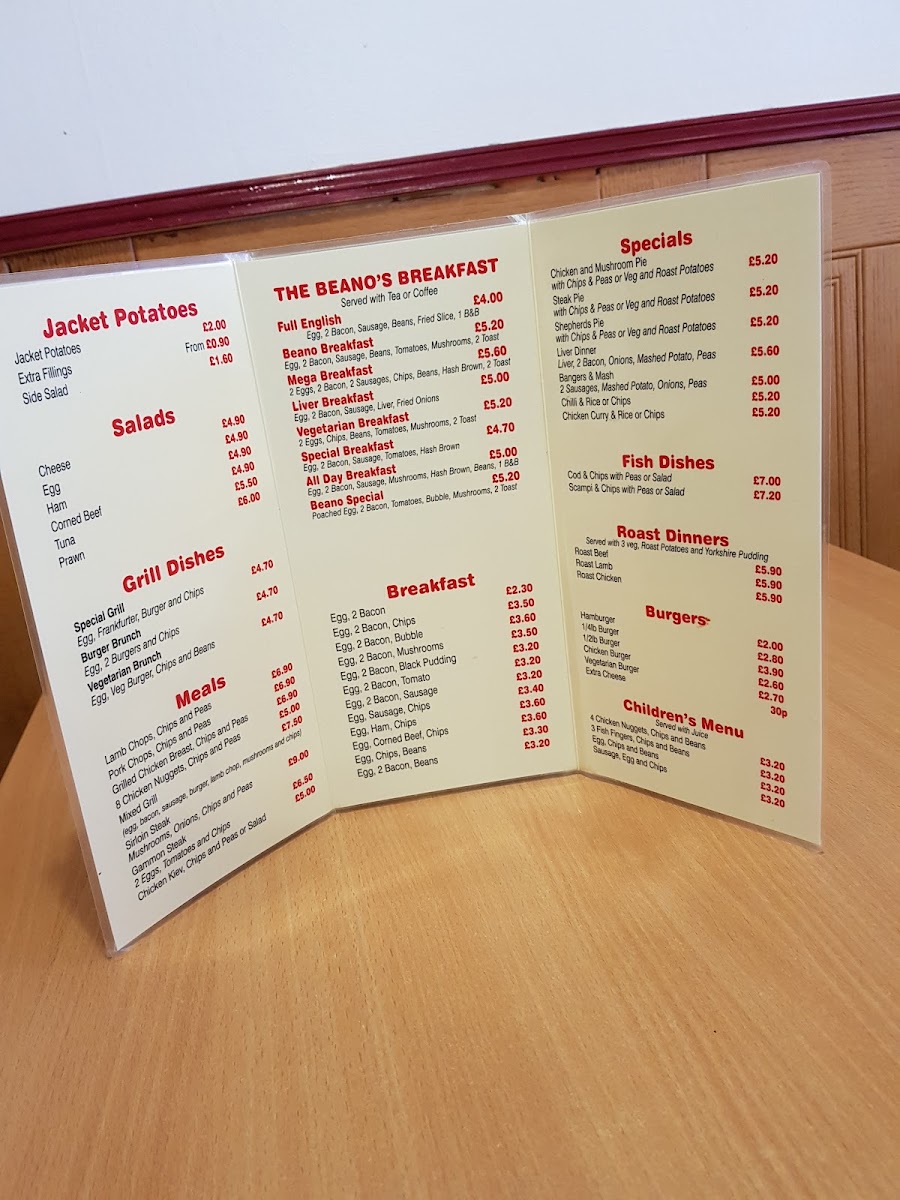 Jacket Potatoes
Jacket Potatoes £2.00
Extra Fillings From £0.90
Side Salad £1.60
Salads
Cheese £4.90
Egg £4.90
Ham £4.90
Corned Beef £4.90
Tuna £5.50
Prawn £6.00
Grill Dishes
Special Grill £4.70
Egg, Frankfurter, Burger and Chips
Burger Brunch £4.70
Egg, 2 Burgers and Chips
Vegetarian Brunch £4.70
Egg, Veg Burger, Chips and Beans
Meals
Lamb Chops, Chips and Peas £6.90
Pork Chops, Chips and Peas £6.90
Grilled Chicken Breast, Chips and Peas £6.90
8 Chicken Nuggets, Chips and Peas £5.00
Mixed Grill £7.50
(egg, bacon, sausage, burger, lamb chop, mushrooms and chips)
Sirloin Steak £9.00
Mushrooms, Onions, Chips and Peas
Gammon Steak £6.50
2 Eggs, Tomatoes and Chips
Chicken Kiev, Chips and Peas or Salad £5.00
THE BEANO'S BREAKFAST
Served with Tea or Coffee
Full English £4.00
Egg, 2 Bacon, Sausage, Beans, Fried Slice, 1 B&B
Beano Breakfast £5.20
Egg, 2 Bacon, Sausage, Beans, Tomatoes, Mushrooms, 2 Toast
Mega Breakfast £5.60
2 Eggs, 2 Bacon, 2 Sausages, Chips, Beans, Hash Brown, 2 Toast
Liver Breakfast £5.00
Egg, 2 Bacon, Sausage, Liver, Fried Onions
Vegetarian Breakfast £5.20
2 Eggs, Chips, Beans, Tomatoes, Mushrooms, 2 Toast
Special Breakfast £4.70
Egg, 2 Bacon, Sausage, Tomatoes, Hash Brown
All Day Breakfast £5.00
Egg, 2 Bacon, Sausage, Mushrooms, Hash Brown, Beans, 1 B&B
Beano Special £5.20
Poached Egg, 2 Bacon, Tomatoes, Bubble, Mushrooms, 2 Toast
Breakfast
Egg, 2 Bacon £2.30
Egg, 2 Bacon, Chips £3.50
Egg, 2 Bacon, Bubble £3.60
Egg, 2 Bacon, Mushrooms £3.50
Egg, 2 Bacon, Black Pudding £3.20
Egg, 2 Bacon, Tomato £3.20
Egg, 2 Bacon, Sausage £3.20
Egg, Sausage, Chips £3.40
Egg, Ham, Chips £3.60
Egg, Corned Beef, Chips £3.60
Egg, Chips, Beans £3.30
Egg, 2 Bacon, Beans £3.20
Specials
Chicken and Mushroom Pie £5.20
with Chips & Peas or Veg and Roast Potatoes
Steak Pie £5.20
with Chips & Peas or Veg and Roast Potatoes
Shepherds Pie £5.20
with Chips & Peas or Veg and Roast Potatoes
Liver Dinner £5.60
Liver, 2 Bacon, Onions, Mashed Potato, Peas
Bangers & Mash £5.00
2 Sausages, Mashed Potato, Onions, Peas
Chilli & Rice or Chips £5.20
Chicken Curry & Rice or Chips £5.20
Fish Dishes
Cod & Chips with Peas or Salad £7.00
Scampi & Chips with Peas or Salad £7.20
Roast Dinners
Served with 3 veg, Roast Potatoes and Yorkshire Pudding
Roast Beef £5.90
Roast Lamb £5.90
Roast Chicken £5.90
Burgers
Hamburger £2.00
1/4lb Burger £2.80
1/2lb Burger £3.90
Chicken Burger £2.60
Vegetarian Burger £2.70
Extra Cheese 30p
Children's Menu
Served with Juice
4 Chicken Nuggets, Chips and Beans £3.20
3 Fish Fingers, Chips and Beans £3.20
Egg, Chips and Beans £3.20
Sausage, Egg and Chips £3.20